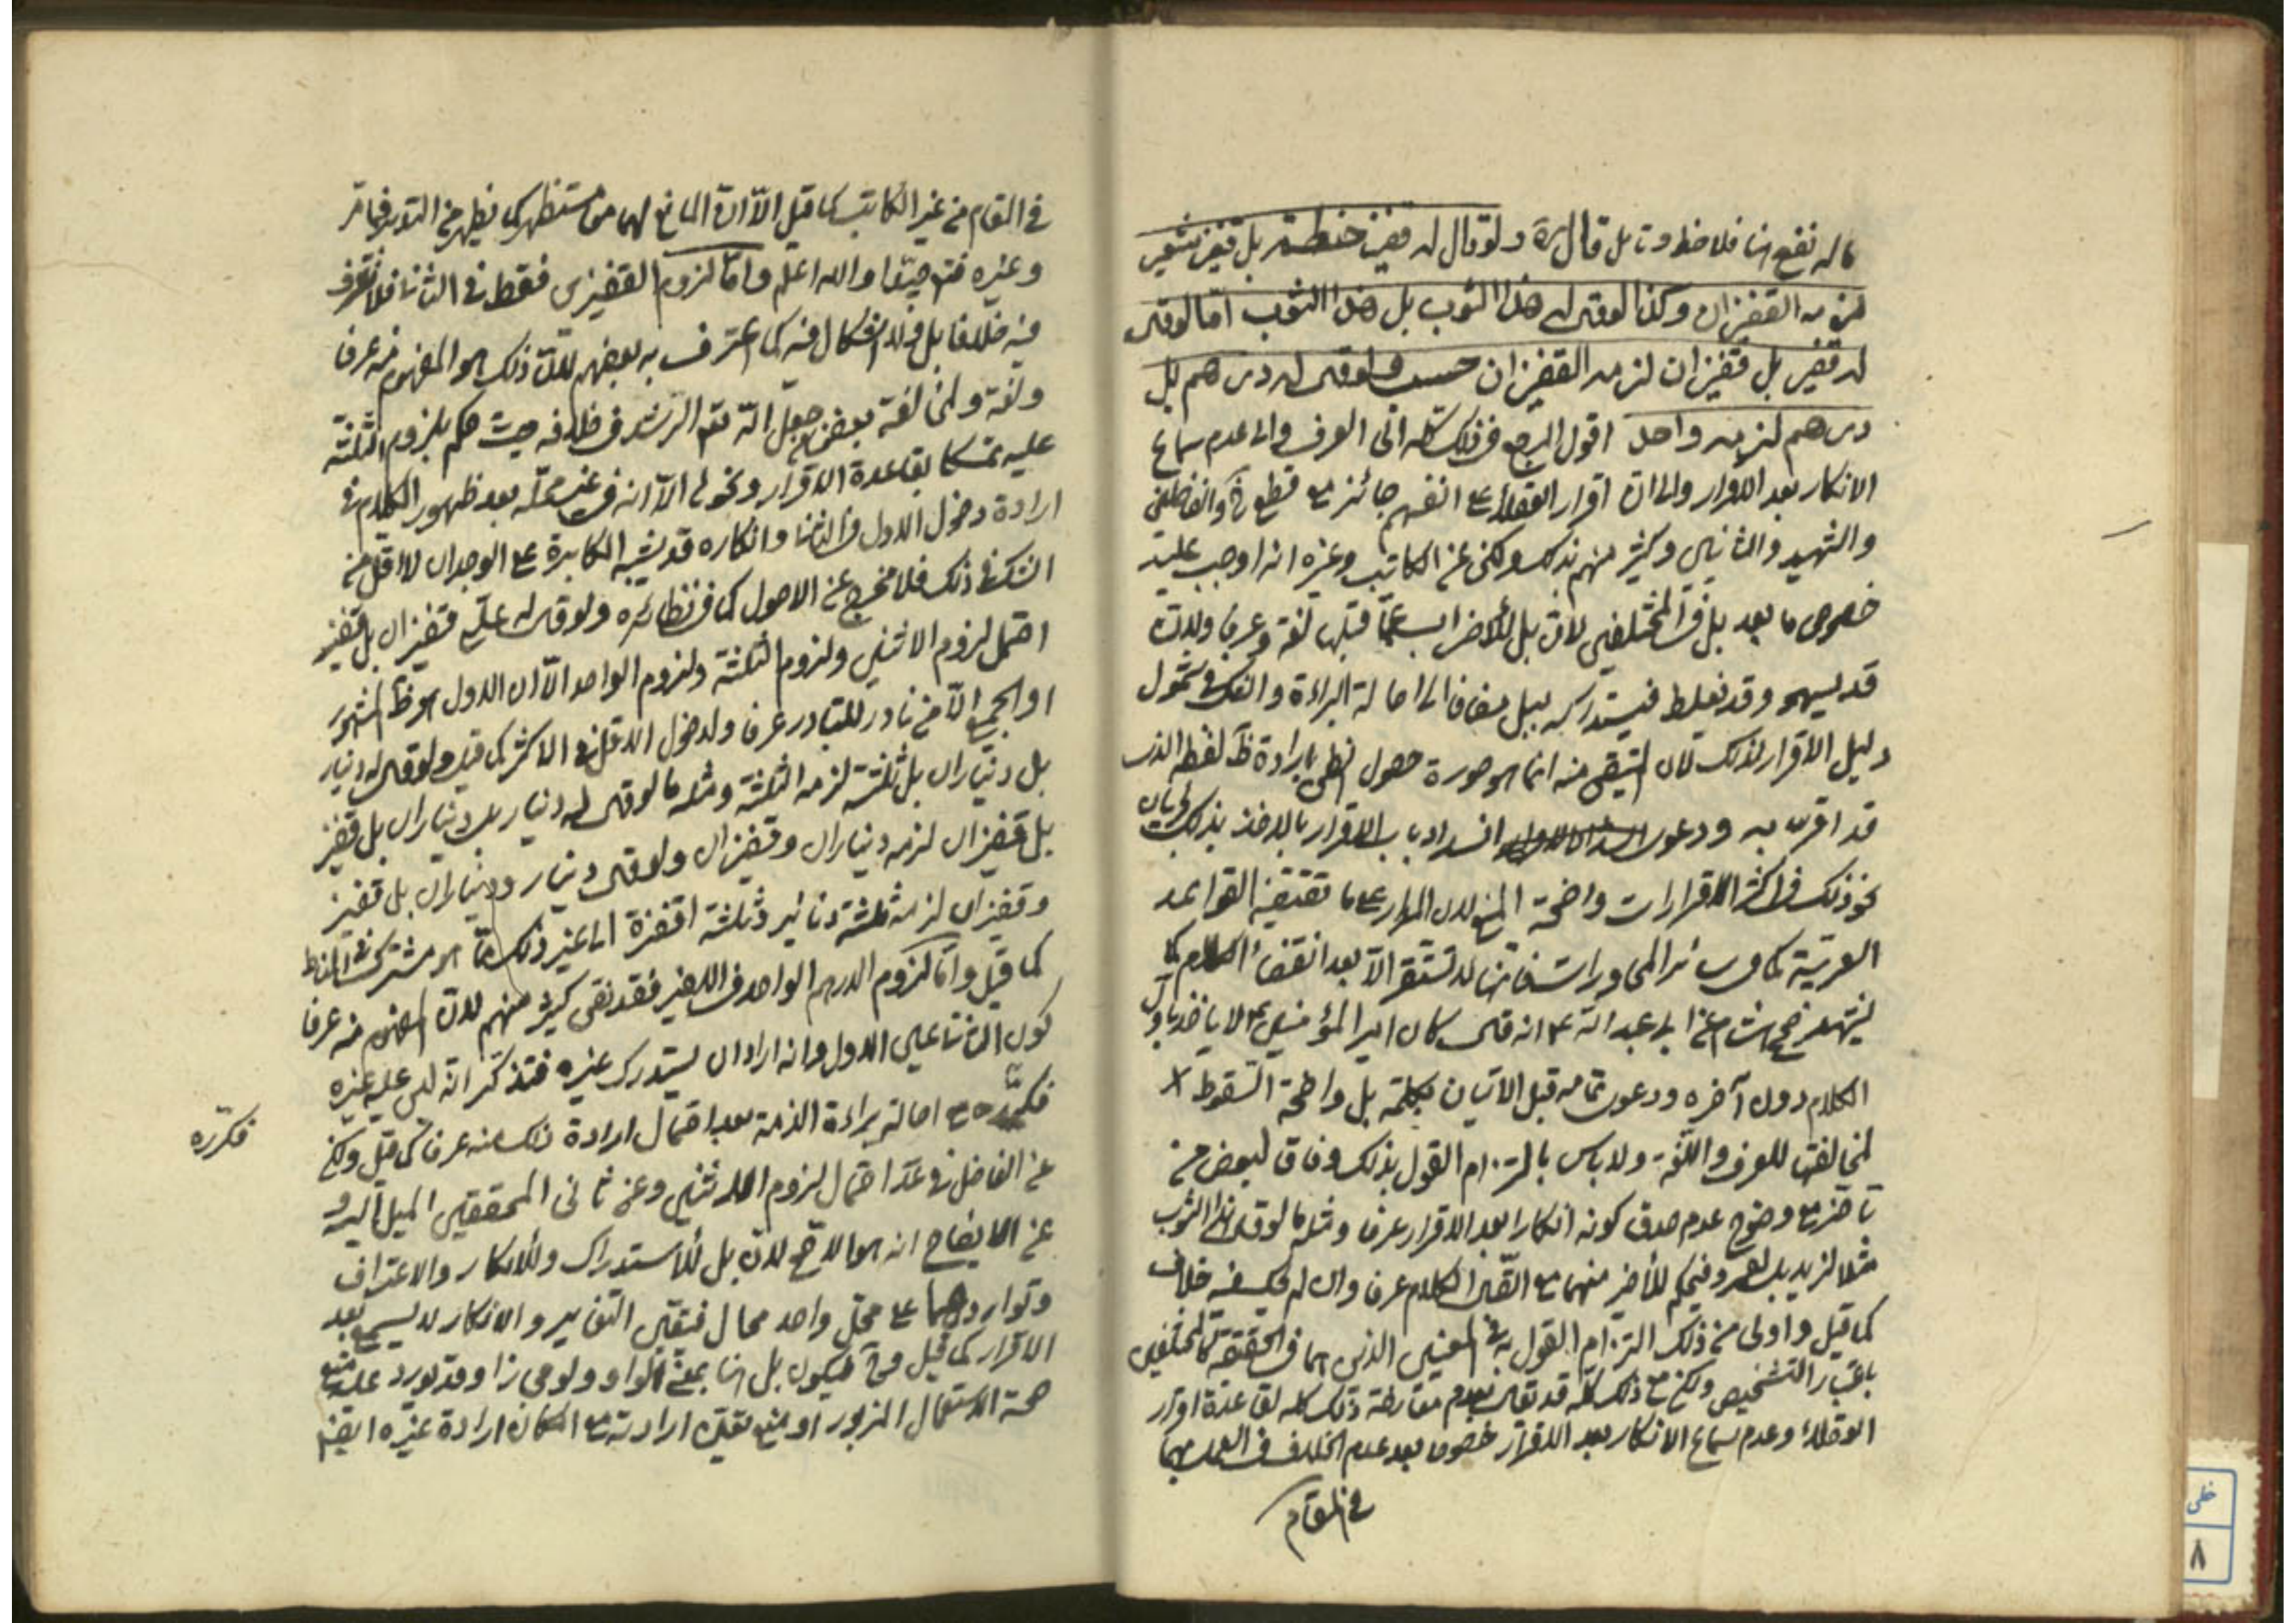 ماله نفع هنا فلاحظ وتامل قال ره ولو قال له قفيز حنطة بل قفيز شعير
لزمه القفيزان وكذا لو قال له هذا الثوب بل هذا الثوب اما لو قال
له قفيز بل قفيزان لزمه القفيزان حسب ولو قال له درهم بل
درهم لزمه واحد اقول المرجع في ذلك كله الى العرف والى عدم سماع
الانكار بعد الاقرار والى ان اقرار العقلاء على انفسهم جائز مع قطع
والشهيد والثاني وكثير منهم بذلك ولكن عن الكاتب وغيره انه اوجب عليه
خصوص ما بعد بل في المختلفين لان بل للاضراب عما قبلها لغة وعرفا ولانه
قد يسهو وقد يغلط فيستدركه ببل مضافا الى اصالة البراءة والشك في شمول
دليل الاقرار لذلك لان المتيقن منه انما هو صورة حصول القطع بارادة ظ لفظه الذى
قد اقر به ودعوى انسداد باب الاقرار بالاخذ بذلك لجريان
نحو ذلك في اكثر الاقرارات واضحة المنع لان المدار على ما تقتضيه القواعد
العربية كما في سائر المحاورات فانها لا تستقر الا بعد انقضاء الكلام كما
هشام عن ابى عبد الله ع انه قال كان امير المؤمنين ع لا ياخذ باول
الكلام دون آخره ودعوى تمامه قبل الاتيان بكلمة بل واضحة السقوط
لمخالفتها للعرف واللغة ولا باس بالتزام القول بذلك وفاقا لبعض من
تاخر مع وضوح عدم صدق كونه انكارا بعد الاقرار عرفا ومثله ما لو قال هذا الثوب
مثلا لزيد بل لعمرو فيحكم للاخير منهما مع اتصال الكلام عرفا وان لم يكن فيه خلاف
كما قيل واولى من ذلك التزام القول به في المعينين الذين هما في الحقيقة كالمختلفين
باعتبار التشخيص ولكن مع ذلك كله قد يقال بعدم معارضة ذلك كله لقاعدة اقرار
العقلاء وعدم سماع الانكار بعد الاقرار خصوصا بعد عدم الخلاف في العمل بهما
في المقام
في المقام من غير الكاتب كما قيل الا ان المانع لهما مستظهر كما يظهر من التدبر فيما مر
وغيره فتدبر جيدا والله اعلم واما لزوم القفيزين فقط في الثانى فلا نعرف
فيه خلافا بل ولا اشكال فيه كما اعترف به بعضهم لان ذلك هو المفهوم منه عرفا
ولغة ومخالفة بعض جعل الله تعالى الرشد في خلافه حيث حكم بلزوم الثلثة
عليه تمسكا بقاعدة الاقرار ونحوها الا انه في غير محله بعد ظهور الكلام في
ارادة دخول الاول في الثانى وانكاره قد يشبه المكابرة على الوجدان لا اقل من
الشك في ذلك فلا مخرج عن الاصول كما في نظائره ولو قال له على قفيزان بل قفيز
احتمل لزوم الاثنين ولزوم الثلثة ولزوم الواحد الا ان الاول هو ظ المشهور
او الجميع الا من نادر للتبادر عرفا ولدخول الاقل في الاكثر كما قيل ولو قال له دينار
بل ديناران بل ثلثة لزمه الثلثة ومثله ما لو قال له دينار بل ديناران بل قفيز
بل قفيزان لزمه ديناران وقفيزان ولو قال دينار وديناران بل قفيز
وقفيزان لزمه ثلثة دنانير وثلثة اقفزة الى غير ذلك مما هو مشترك في المناط
كما قيل واما لزوم الدرهم الواحد في الاخير فقد نقل كثير منهم لان المفهوم منه عرفا
كون الثانى عين الاول وانه اراد ان يستدرك غيره فتذكر انه ليس عليه غيره
فكرره مع اصالة براءة الذمة بعد احتمال ارادة ذلك منه عرفا كما قيل ولكن
عن الفاضل في عد احتمال لزوم الاثنين وعن ثانى المحققين الميل اليه و
عن الايضاح انه هو الاصح لان بل للاستدراك وللانكار والاعتراف
وتواردهما على محل واحد محال فيقتضى التغاير والانكار لا يسمع بعد
الاقرار كما قيل فيكون بل هنا بمعنى الواو ولو مجازا وقد يورد عليه منع
صحة الاستعمال المزبور او منع تعين ارادته مع امكان ارادة غيره ايضا
فكرره
خطى
٨